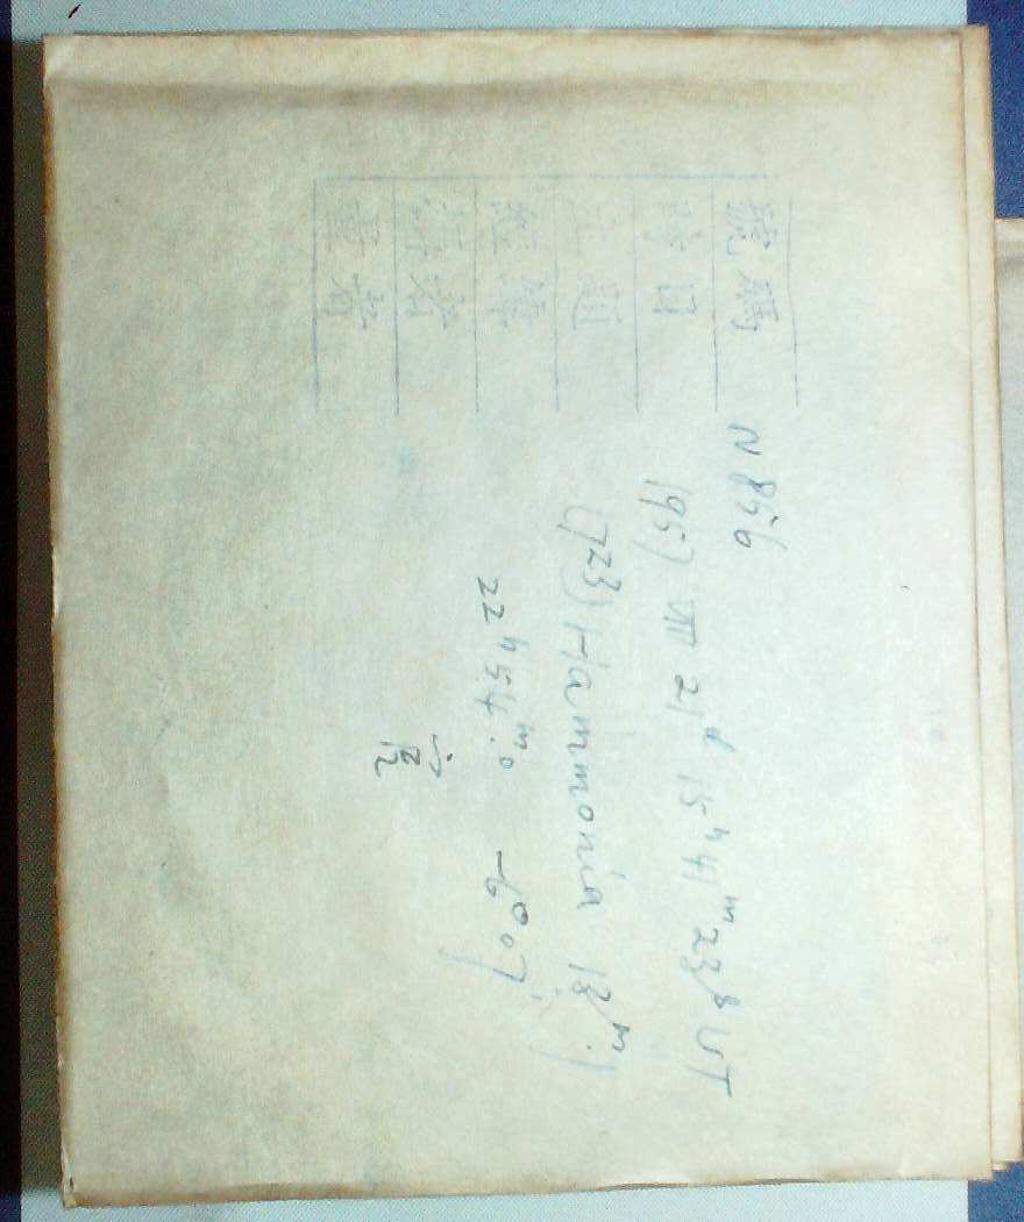 號碼 N 856
時日 1957 VII 21ᵈ 15ʰ41ᵐ23ˢ UT
主題 (723) Hammonia 13ᵐ.1
經緯 22ʰ54ᵐ.0 -6°07'
導者
量者